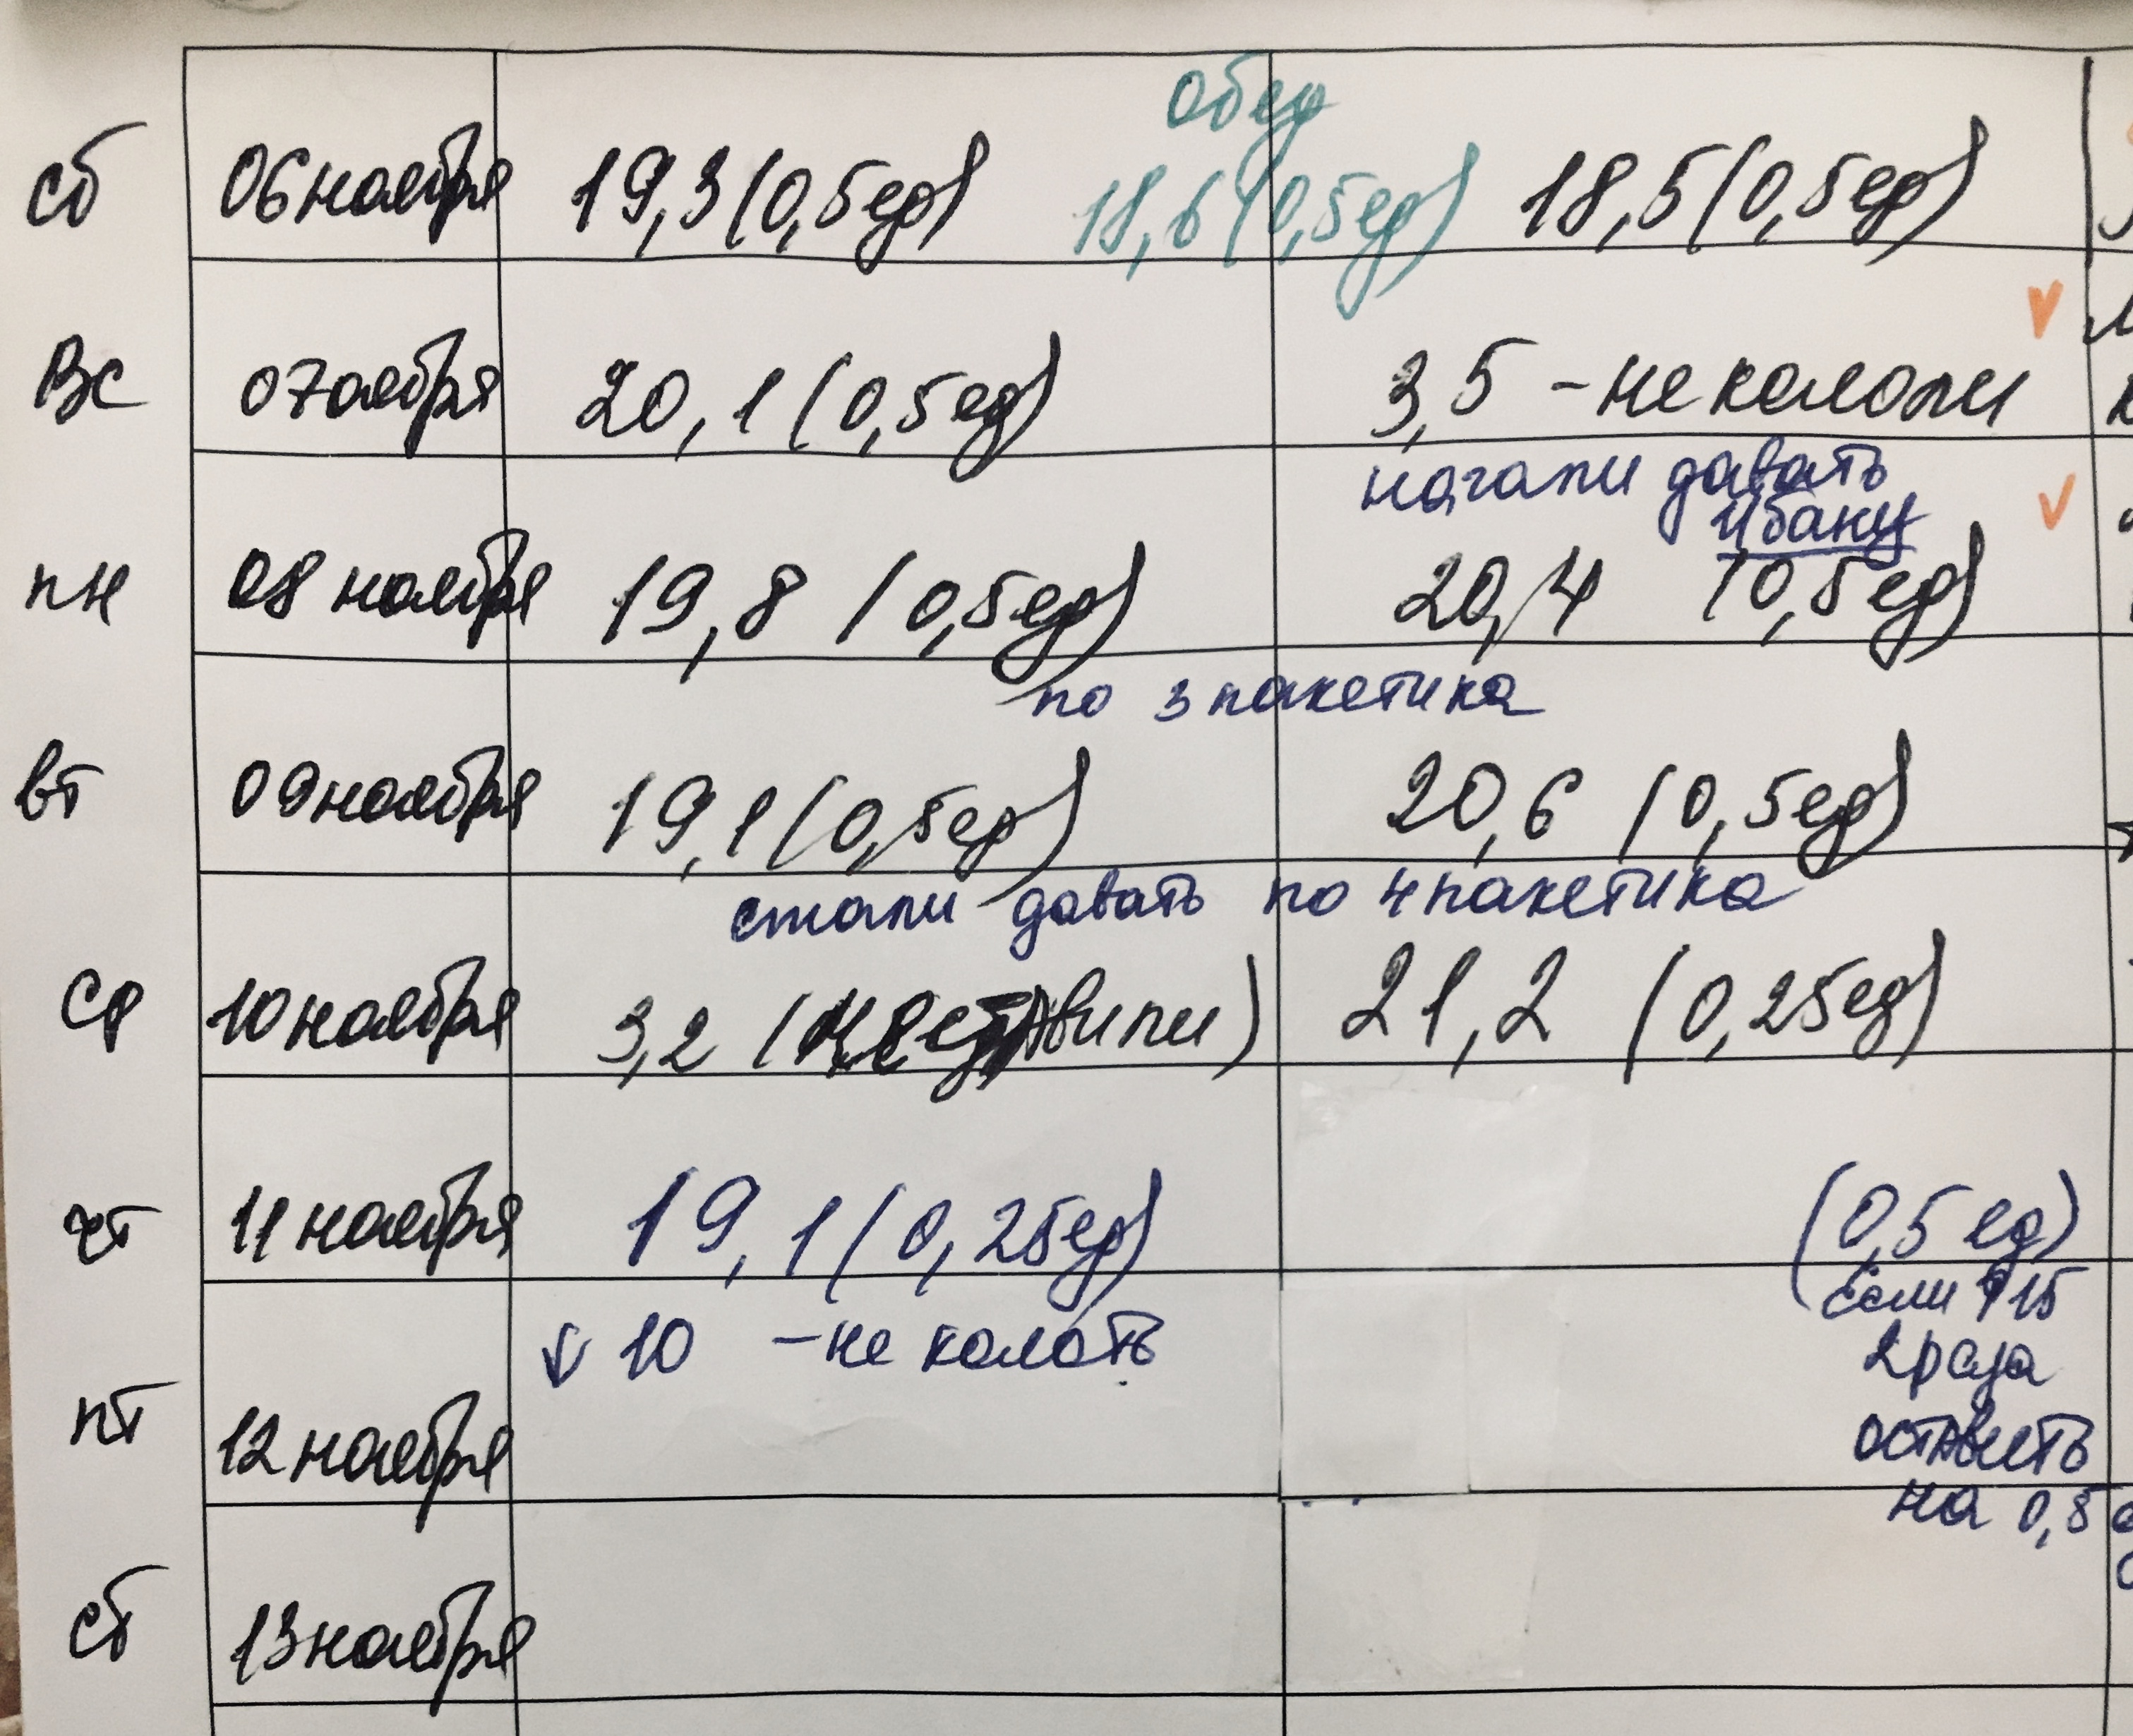 обед
сб 06 ноября 19,3 (0,5ед) 18,6 (0,5ед) 18,5 (0,5ед)
Вс 07 оября 20,1 (0,5ед) 3,5 - не кололи
начали давать
пн 08 ноября 19,8 (0,5ед) 20,4 (0,5ед)
по 3 пакетика
вт 09 ноября 19,1 (0,5ед) 20,6 (0,5ед)
стали давать по 4 пакетика
Ср 10 ноября 3,2 21,2 (0,25ед)
чт 11 ноября 19,1 (0,25ед) (0,5 ед)
если ↑ 15
↓ 10 - не колоть
2 раза
пт 12 ноября
оставить
на 0,5
сб 13 ноября